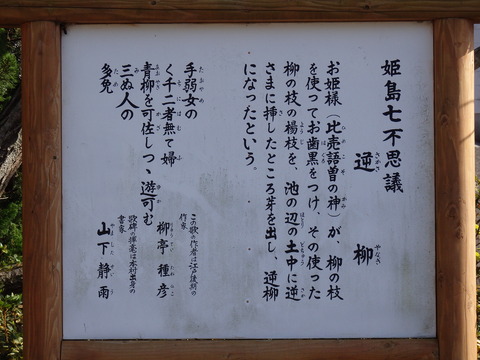 姫島七不思議
逆柳
お姫様(比売語曽の神)が、柳の枝
を使ってお歯黒をつけ、その使った
柳の枝の楊枝を、池の辺の土中に逆
さまに挿したところ芽を出し、逆柳
になったという。
手弱女の
く千二者無て婦
青柳を可佐しつゝ遊可む
三ぬ人の
多免
この歌の作者は江戸後期の
作家
柳亭種彦
歌碑の揮毫は本村出身の
書家
山下静雨